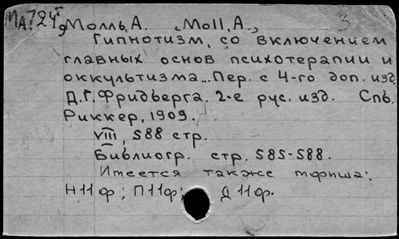 Па724г Молль, А. (Moll, A.) 3
Гипнотизм, со включением
главных основ психотерапии и
оккультизма... Пер. с 4-го доп. изд.
Д. Г. Фридберга. 2-е рус. изд. Спб.
Риккер, 1909.
VIII, 588 стр.
Библиогр. стр. 585-588.
Имеется также
Н11ф; П11ф; Д11ф.